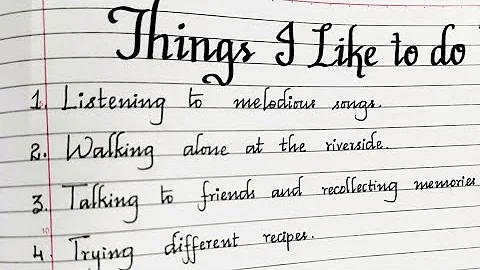 Things I Like to do
1. Listening to melodious songs.
2. Walking alone at the riverside.
3. Talking to friends and recollecting memories
4. Trying different recipes.